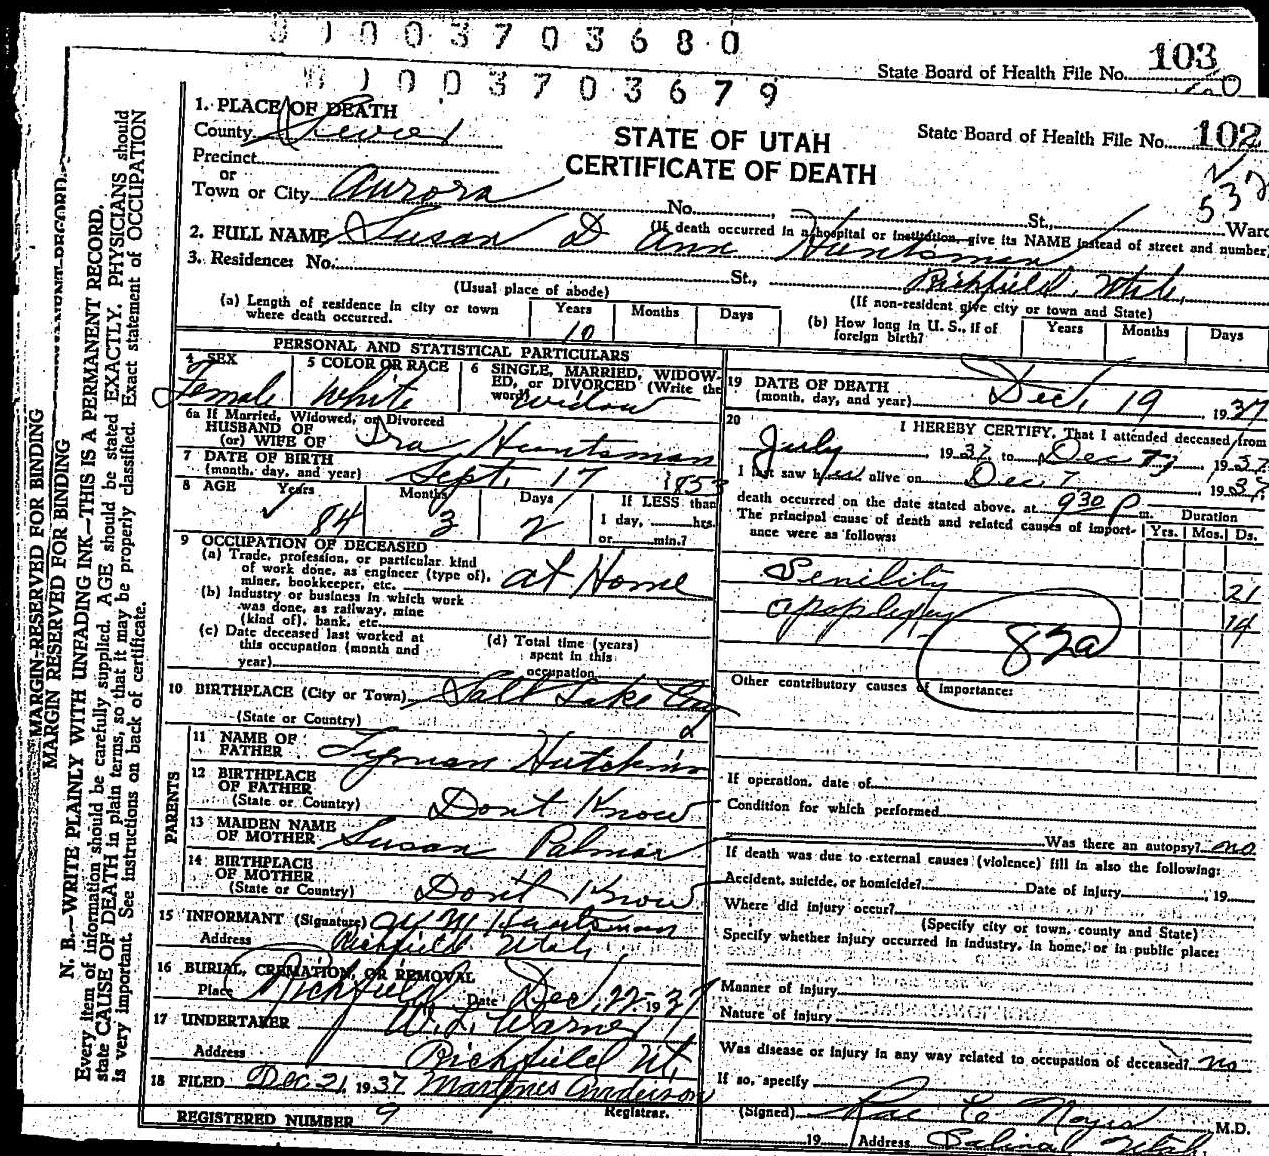 0 0 3 7 0 3 6 8 0
State Board of Health File No. 103
0 0 3 7 0 3 6 7 9
State Board of Health File No. 102
532
1. PLACE OF DEATH
County Sevier
STATE OF UTAH
CERTIFICATE OF DEATH
Precinct
or
Town or City Aurora No. St., Ward
(If death occurred in a hospital or institution, give its NAME instead of street and number)
2. FULL NAME Susan D Ann Huntsman
3. Residence: No. St., Richfield, Utah,
(Usual place of abode) (If non-resident give city or town and State)
(a) Length of residence in city or town where death occurred. Years 10 Months Days
(b) How long in U. S., if of foreign birth? Years Months Days
PERSONAL AND STATISTICAL PARTICULARS
4 SEX Female
5 COLOR OR RACE White
6 SINGLE, MARRIED, WIDOWED, or DIVORCED (Write the word) widow
6a If Married, Widowed, or Divorced
HUSBAND OF
(or) WIFE OF Ira Huntsman
7 DATE OF BIRTH
(month, day, and year) Sept. 17 1853
8 AGE Years 84 Months 3 Days 2 If LESS than
1 day, hrs.
or min.?
9 OCCUPATION OF DECEASED
(a) Trade, profession, or particular kind
of work done, as engineer (type of),
miner, bookkeeper, etc. at Home
(b) Industry or business in which work
was done, as railway, mine
(kind of), bank, etc.
(c) Date deceased last worked at
this occupation (month and
year)
(d) Total time (years)
spent in this
occupation
10 BIRTHPLACE (City or Town) Salt Lake City
(State or Country)
PARENTS
11 NAME OF
FATHER Lyman Hutchins
12 BIRTHPLACE
OF FATHER
(State or Country) Don't Know
13 MAIDEN NAME
OF MOTHER Susan Palmer
14 BIRTHPLACE
OF MOTHER
(State or Country) Don't Know
15 INFORMANT (Signature) Huntsman
Address Richfield Utah
16 BURIAL, CREMATION, OR REMOVAL
Place Richfield Date Dec. 22 1937
17 UNDERTAKER W. L. Warner
Address Richfield Ut.
18 FILED Dec 21 1937 Anderson
Registrar.
REGISTERED NUMBER 9
19 DATE OF DEATH
(month, day, and year) Dec. 19 1937
20 I HEREBY CERTIFY, That I attended deceased from
July 1937 to Dec 1937
I last saw her alive on Dec 7 1937
death occurred on the date stated above, at 930 P m.
The principal cause of death and related causes of importance were as follows: Duration Yrs. Mos. Ds.
Senility 21
apoplexy 14
82a
Other contributory causes of importance:
If operation, date of
Condition for which performed
Was there an autopsy? no
If death was due to external causes (violence) fill in also the following:
Accident, suicide, or homicide? Date of injury , 19
Where did injury occur?
(Specify city or town, county and State)
Specify whether injury occurred in industry, in home, or in public place:
Manner of injury
Nature of injury
Was disease or injury in any way related to occupation of deceased? no
If so, specify
(Signed) Rae E Noyes M.D.
19 Address Salina Utah.
MARGIN RESERVED FOR BINDING
MARGIN RESERVED FOR BINDING
N. B.—WRITE PLAINLY WITH UNFADING INK—THIS IS A PERMANENT RECORD.
Every item of information should be carefully supplied. AGE should be stated EXACTLY. PHYSICIANS should
state CAUSE OF DEATH in plain terms, so that it may be properly classified. Exact statement of OCCUPATION
is very important. See instructions on back of certificate.